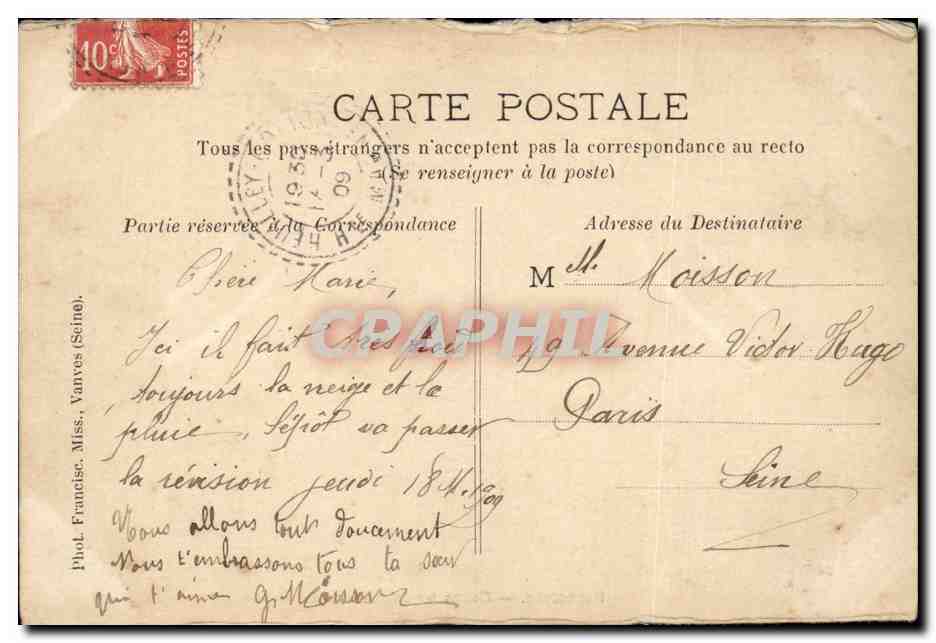 10c POSTES
CARTE POSTALE
Tous les pays étrangers n'acceptent pas la correspondance au recto
(Se renseigner à la poste)
19 30
09
Partie réservée à la Correspondance
Chère Marie,
Ici il fait très froid
toujours la neige et la
pluie, va passer
la révision jeudi 18 M. 1909
Nous allons tout doucement
Nous t'embrassons tous ta sœur
qui t'aime G. Moisson
Adresse du Destinataire
M lle Moisson
49 Avenue Victor Hugo
Paris
Seine
Phot. Francisc. Miss., Vanves (Seine).
CPAPHIL